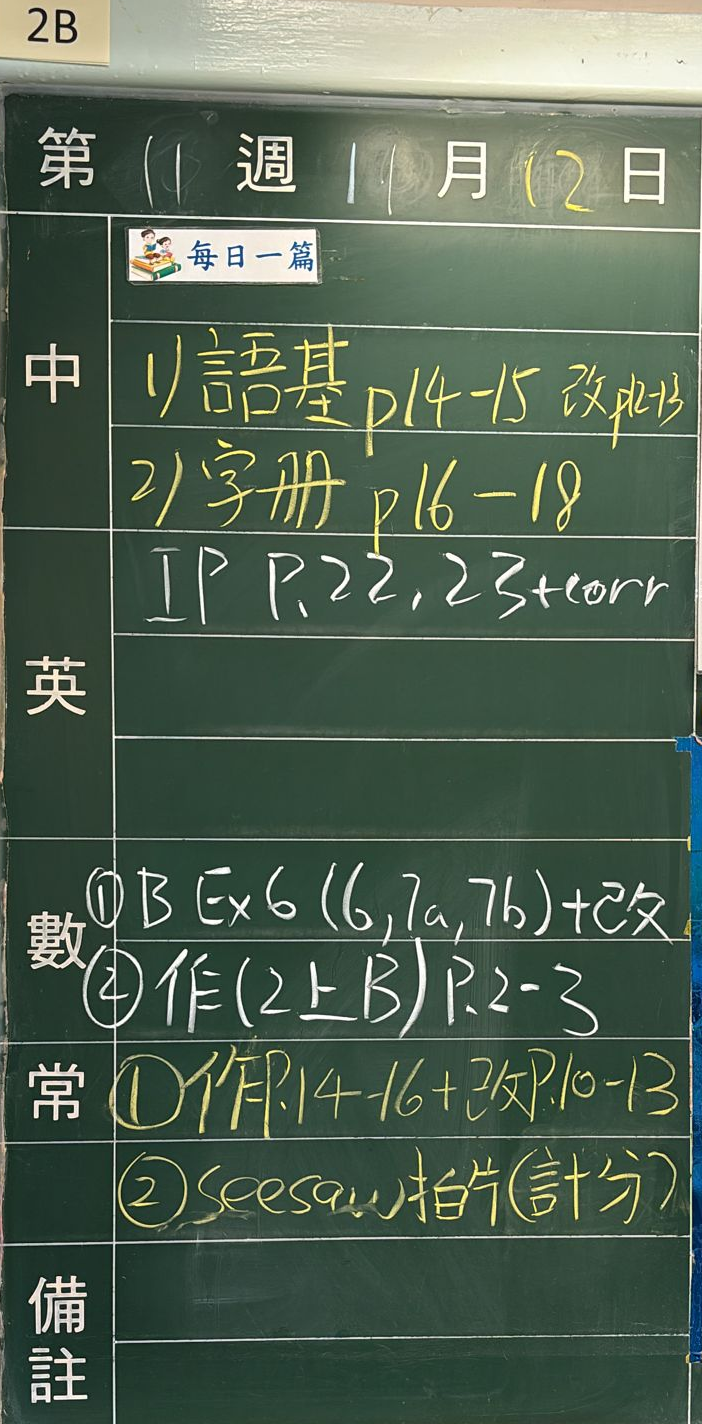 2B
第 11 週 11 月 12 日
中
每日一篇
1) 語基 p14-15 改p12-13
2) 字册 p16-18
英
IP P.22, 23+corr
數
① B Ex6 (6,7a,7b)+改
② 作(2上B) P.2-3
常
① 作P.14-16+改P.10-13
② seesaw拍片(計分)
備註